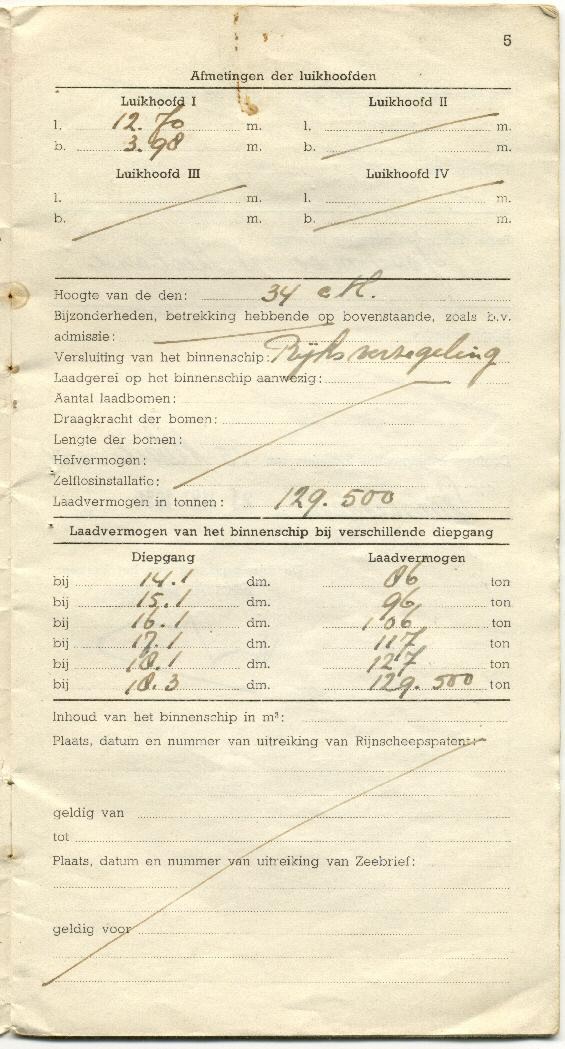 5
Afmetingen der luikhoofden
Luikhoofd I Luikhoofd II
l. 12.70 m. l. m.
b. 3.98 m. b. m.
Luikhoofd III Luikhoofd IV
l. m. l. m.
b. m. b. m.
Hoogte van de den: 34 cM.
Bijzonderheden, betrekking hebbende op bovenstaande, zoals b.v.
admissie:
Versluiting van het binnenschip: Rijksverzegeling
Laadgerei op het binnenschip aanwezig:
Aantal laadbomen:
Draagkracht der bomen:
Lengte der bomen:
Hefvermogen:
Zelflosinstallatie:
Laadvermogen in tonnen: 129.500
Laadvermogen van het binnenschip bij verschillende diepgang
Diepgang Laadvermogen
bij 14.1 dm. 86 ton
bij 15.1 dm. 96 ton
bij 16.1 dm. 106 ton
bij 17.1 dm. 117 ton
bij 18.1 dm. 127 ton
bij 18.3 dm. 129.500 ton
Inhoud van het binnenschip in m³:
Plaats, datum en nummer van uitreiking van Rijnscheepspatent:
geldig van
tot
Plaats, datum en nummer van uitreiking van Zeebrief:
geldig voor